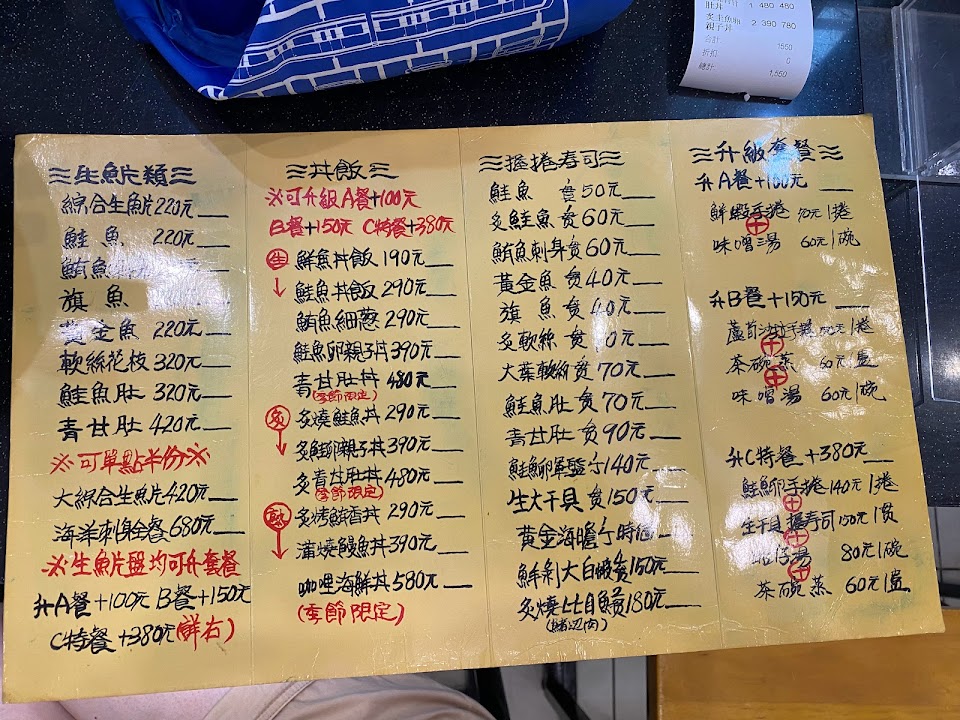 肚丼 1 480 480
2 390 780
親子丼
合計 1550
折扣 0
總計 1,550
生魚片類
綜合生魚片 220元
鮭魚 220元
鮪魚
旗魚
黃金魚 220元
軟絲花枝 320元
鮭魚肚 320元
青甘肚 420元
※可單點半份※
大綜合生魚片 420元
海洋刺身全餐 680元
※生魚片盤均可升套餐
升A餐+100元 B餐+150元
C特餐+380元(鮮右)
丼飯
※可升級A餐+100元
B餐+150元 C特餐+380元
生 鮮魚丼飯 190元
鮭魚丼飯 290元
鮪魚細蔥 290元
鮭魚卵親子丼 390元
青甘肚丼 480元
(季節限定)
炙 炙燒鮭魚丼 290元
炙鮭卵親子丼 390元
炙青甘肚丼 480元
(季節限定)
熟 炙烤鮪香丼 290元
蒲燒鰻魚丼 390元
咖哩海鮮丼 580元
(季節限定)
握捲壽司
鮭魚 貫50元
炙鮭魚 貫60元
鮪魚刺身 貫60元
黃金魚 貫40元
旗魚 貫40元
炙軟絲 貫
大葉軟絲 貫70元
鮭魚肚 貫70元
青甘肚 貫90元
鮭魚卵軍艦 140元
生大干貝 貫150元
黃金海膽 時價
鮮剝大白蝦 貫150元
炙燒比目魚 貫180元
(鰭边肉)
升級套餐
升A餐+100元
鮮蝦手捲 90元/捲
+
味噌湯 60元/碗
升B餐+150元
蘆筍沙拉手捲 /捲
+
茶碗蒸 60元/盅
+
味噌湯 60元/碗
升C特餐+380元
鮭魚卵手捲 140元/捲
+
生干貝握寿司 150元/貫
+
蛤仔湯 80元/碗
+
茶碗蒸 60元/盅